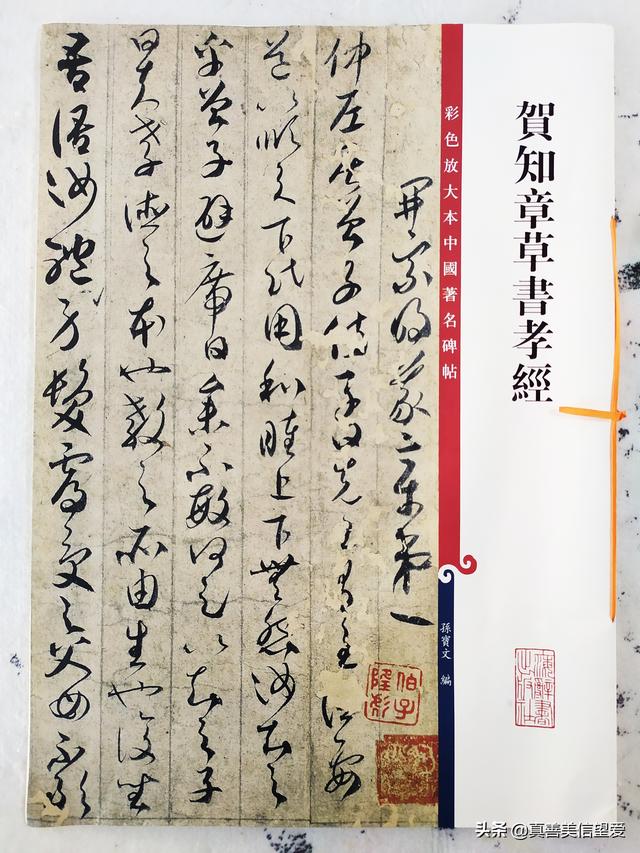 賀知章草書孝經
彩色放大本中國著名碑帖
孫寶文 編
上海辭書出版社
開宗明義章第一
仲尼居曾子侍子曰先王有至德要
道以順天下民用和睦上下無怨汝知之
乎曾子避席曰參不敏何足以知之子
曰夫孝德之本也教之所由生也復坐
吾語汝體身髮膚受之父母不敢
头条 @真善美信望爱